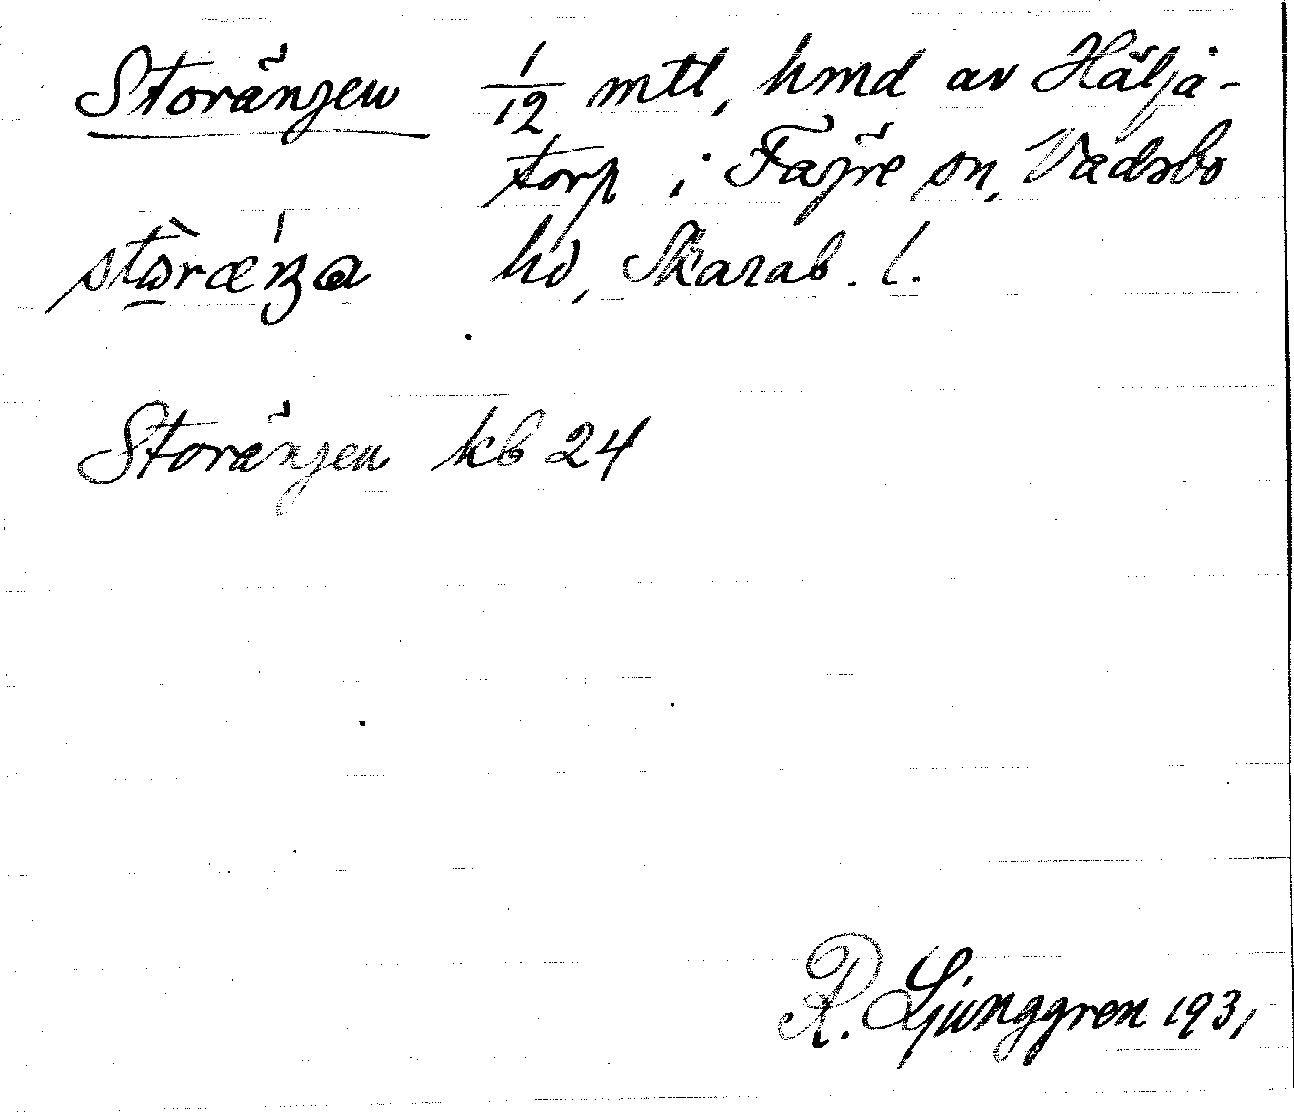 Storängen 1/12 mtl, hmd av Hälja-
torp i Fägre sn, Vadsbo
hd, Skarab. l.
Storängen kb 24
R. Ljunggren 1931